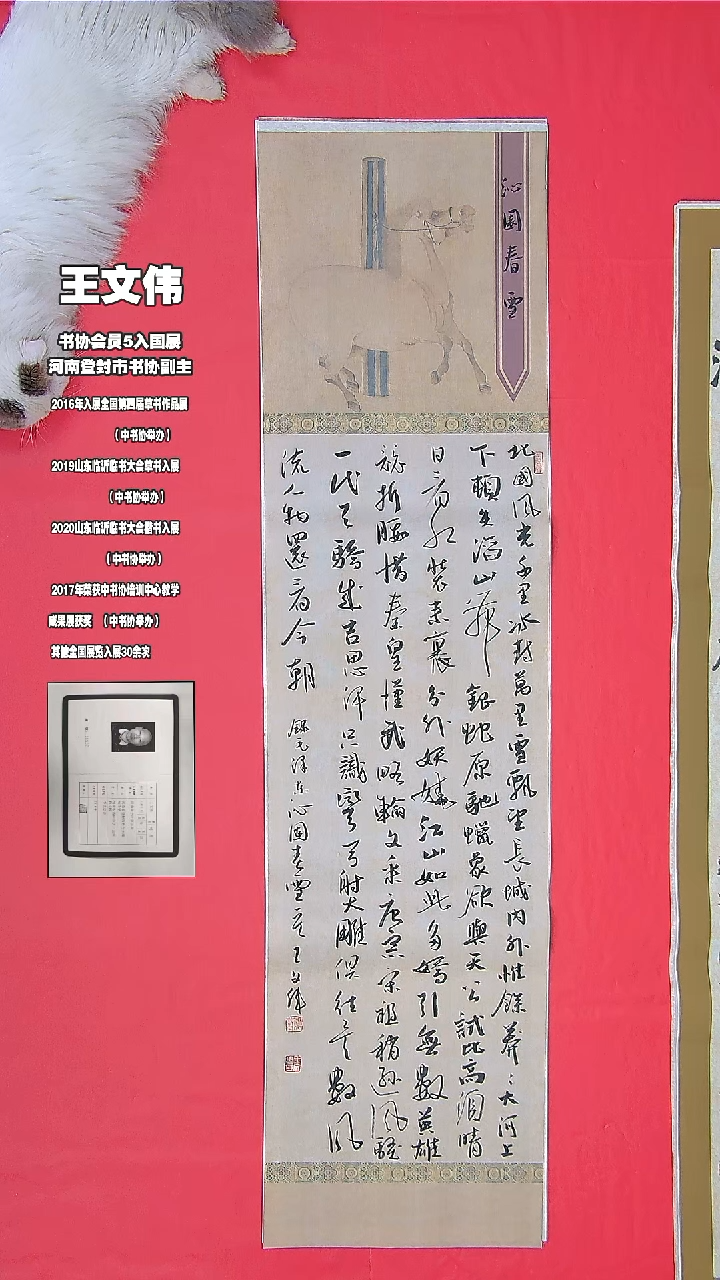 王文伟
书协会员5入国展
河南登封市书协副主
2016年入展全国第四届草书作品展
（中书协举办）
2019山东临沂临书大会草书入展
（中书协举办）
2020山东临沂临书大会楷书入展
（中书协举办）
2017年荣获中书协培训中心教学
成果展获奖 （中书协举办）
其他全国展览入展30余次
沁園春雪
北國風光千里冰封萬里雪飄望長城内外惟餘莽〻大河上
下頓失滔山舞銀蛇原馳蠟象欲與天公試比高須晴
日看紅裝素裹分外妖嬈江山如此多嬌引無數英雄
競折腰惜秦皇漢武略輸文采唐宗宋祖稍遜風騷
一代天驕成吉思汗只識彎弓射大雕俱往矣數風
流人物還看今朝
錄毛澤東沁園春雪 王文偉